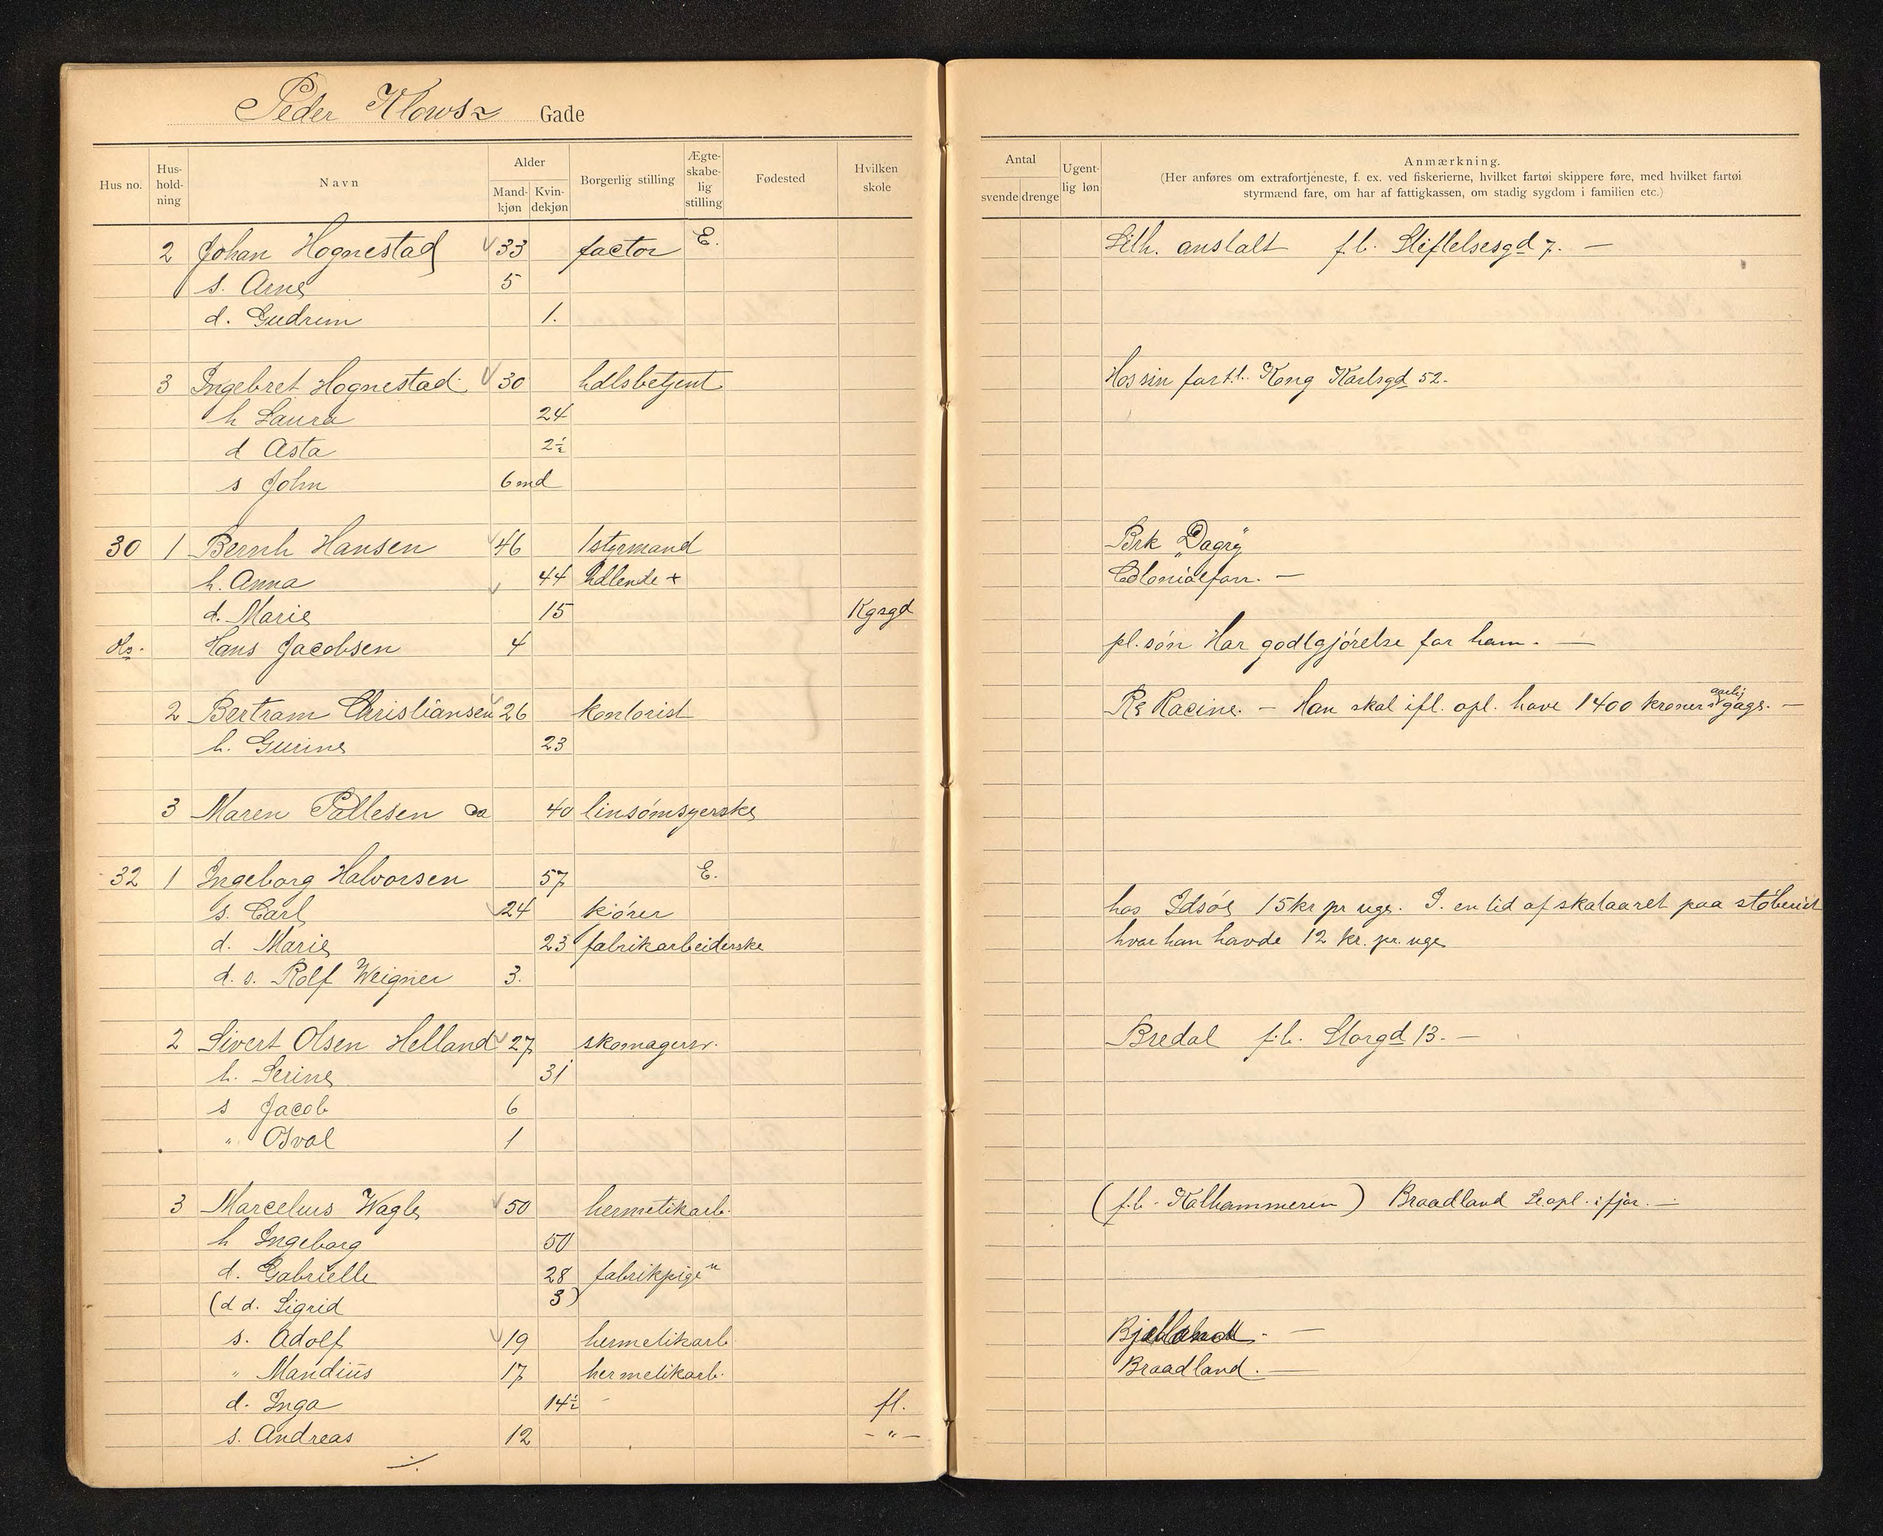 Peder Klows Gade
Hus no. Hus-hold-ning Navn Alder Mand-kjøn Kvin-dekjøn Borgerlig stilling Ægte-skabe-lig stilling Fødested Hvilken skole
Antal svende drenge Ugent-lig løn Anmærkning.
(Her anføres om extrafortjeneste, f. ex. ved fiskerierne, hvilket fartøi skippere føre, med hvilket fartøi
styrmænd fare, om har af fattigkassen, om stadig sygdom i familien etc.)
2 Johan Hognestad 33 factor E. Lith. anstalt f.b. Stiftelsesgd 7. —
s. Arne 5
d. Gudrun 1.
3 Ingebret Hognestad 30 hdlsbetjent Hos sin far f.b. Kong Karlsgd 52.
h Laura 24
d Asta 2½
s John 6 md
30 1 Bernh Hansen 46 1styrmand Brk "Dagry"
h. Anna 44 hdlende + Colonialforr. —
d. Marie 15 Kgsgd
Hans Jacobsen 4 pl. søn Har godtgjørelse for ham. —
2 Bertram Christiansen 26 kontorist Racine. — Han skal ifl. opl. have 1400 kroner aarlig gage. —
h. Gurine 23
3 Maren Pallesen 40 linsømsyerske
32 1 Ingeborg Halvorsen 57 E.
s. Carl 24 kjører hos Idsøe 15 kr pr uge. I. en tid af skataaret paa støberiet
d. Marie 23 fabrikarbeiderske hvor han havde 12 kr. pr. uge
d. s. Rolf Weigner 3.
2 Sivert Olsen Helland 27 skomagersv. Bredal f.b. Storgd 13. —
h. Serine 31
s Jacob 6
" Osval 1
3 Marcelius Wagle 50 hermetikarb. (f.b. Kalhammeren) Braadland Se opl. i fjor. —
h Ingeborg 50
d. Gabrielle 28 fabrikpige "
(d d. Sigrid 3)
s. Adolf 19 hermetikarb. Bjelland. —
" Mandius 17 hermetikarb. Braadland. —
d. Inga 14½ fl.
s. Andreas 12 — " —